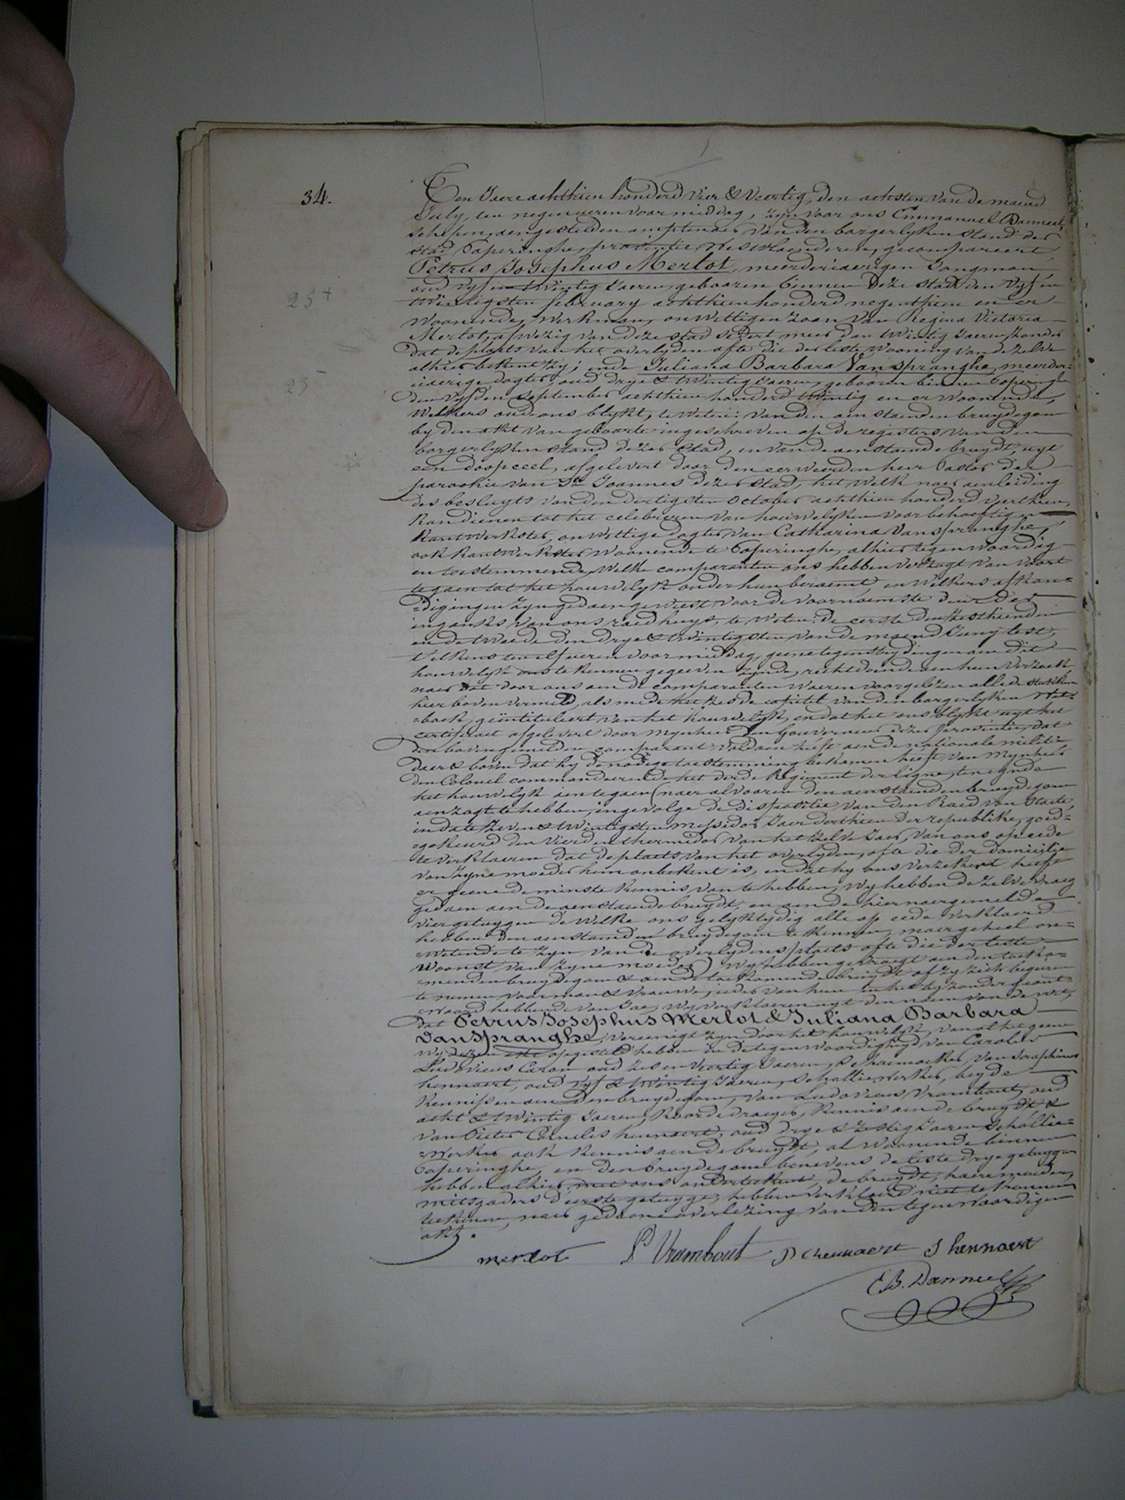 34.
Ten Jaere achthien honderd vier & veertig, den achsten van de maend
July, ten negen ueren voormiddag, zyn voor ons Emmanuel Danneel,
schepen, aengestelden amptenaer van den borgerlyken stand der
stad Poperinghe, provintie Westvlaenderen, gecompareert
Petrus Josephus Merlot, meerderjaerigen Jongman,
oud vyf en twintig Jaeren, geboren binnen deze stad den vyf en
twintigsten february achthien honderd negenthien en er
woonende, werkman, onwettigen zoon van Regina Victoria
Merlot, afwezig van deze stad sedert meer dan twintig Jaeren, zonder
dat de plaets van het overlyden ofte die der leste wooning van de zelve
alhier bekent zy; ende Juliana Barbara Van Spranghe, meerder-
jaerige dogter, oud drye & twintig Jaeren, geboren binnen Poperinghe
den vyfden September achthien honderd twintig en er woonende,
Welkers oude ons blykt, te weten: van den aenstaenden bruydegom
by den akt van geboorte ingeschreven op de registers van den
borgerlyken stand dezer stad, en van de aenstaende bruydt, uyt
een doopceel, afgelevert door den eerweerden heer Pastor der
parochie van St Joannes dezer stad, het welk naer aenleiding
des besluyts van den dertigsten October achthien honderd veerthien,
kan dienen tot het celebreren van houwelyken voor behoeftige,
kantwerkster, onwettige dogter van Catharina Van Spranghe,
ook kantwerkster, woonende te Poperinghe, alhier tegenwoordig
en toestemmende, Welke comparanten ons hebben verzogt van voort
te gaen tot het houwelyk onder hun beraemt, en welkers afkon-
digingen zyn gedaen geweest voor de voornaemste deur der
ingank van ons raedhuys, te weten: de eerste den zesthienden
en de tweede den drye & twintigsten van de maend Juny lest,
telkens ten elf ueren voormiddag, geene tegenstrydingen aen dit
houwelyk ons te kennen gegeven zynde, recht doende aen hun verzoek,
naer dat door ons aen de comparanten waeren voorgelezen alle de stukken
hier boven vermeld, als mede het zesde capittel van den borgerlyken Wet-
boek, geintituleert van het houwelyk, en dat het ons blykt uyt het
certificaet afgelevert door Mynheer den Gouverneur dezer provintie, dat
den bovengemelden comparant voldaen heeft aen de nationale militie
daer & boven dat hy de noodige toestemming bekomen heeft van Mynheer
den Colonel commanderende het derde Regiment der ligne, ten eynde
het houwelyk aen te gaen (naer alvooren den aenstaenden bruydegom
aenzogt te hebben, ingevolge de dispositie van den Raed van Staete,
in date zeven & twintigsten Messidor Jaer derthien der republike, goed-
gekeurd den vierden thermidor van het zelve Jaer, van ons op eede
te verklaeren dat de plaets van het overlyden, ofte die der domicilie
van zyne moeder hem onbekent is, en dat hy ons verzekerd heeft
er geene de minste kennis van te hebben, Wy hebben de zelve vraeg
gedaen aen de aenstaende bruydt, en aen de hiernaergemelde
vier getuygen de welke ons gelyktydig alle op eede verklaerd
hebben den aenstaenden bruydegom te kennen, maer geheel on-
wetende te zyn van de overlydensplaets ofte die der leste
woonst van zyne moeder) Wy hebben gevraegt aen den toeko-
menden bruydegom & aen de toekomende bruydt of zy zich begeren
te nemen voor man & vrouwe, ieder van hun in het byzonder geant-
woord hebbende van Jae, Wy verklaeren uyt den naem van de wet,
dat Petrus Josephus Merlot & Juliana Barbara
Van Spranghe, vereenigt zyn door het houwelyk, van al het geene
Wy dezen akt opgesteld hebben in de tegenwoordigheyd van Carolus
Ludovicus Ceron oud zes en veertig Jaeren, schrynwerker, van Seraphinus
hennaert, oud vyf & twintig Jaeren, schalliewerker, beyde
kennissen aen den bruydegom, van Ludovicus Vrambout, oud
acht & twintig Jaeren, koorddraeyer, kennis aen de bruydt &
van Pieter Cornelis hennaert, oud drye & zestig Jaeren, schallie-
werker ook kennis aen de bruydt, al woonende binnen
Poperinghe, en den bruydegom benevens de leste drye getuygen
hebben alhier met ons onderteekent, de bruydt, haere moeder,
mitsgaders d'eerste getuyge, hebben verklaerd niet te konnen
teekenen, naer gedaene overlezing van den tegenwoordigen
akt.
merlot L Vrambout P C hennaert S hennaert
E B. Danneel